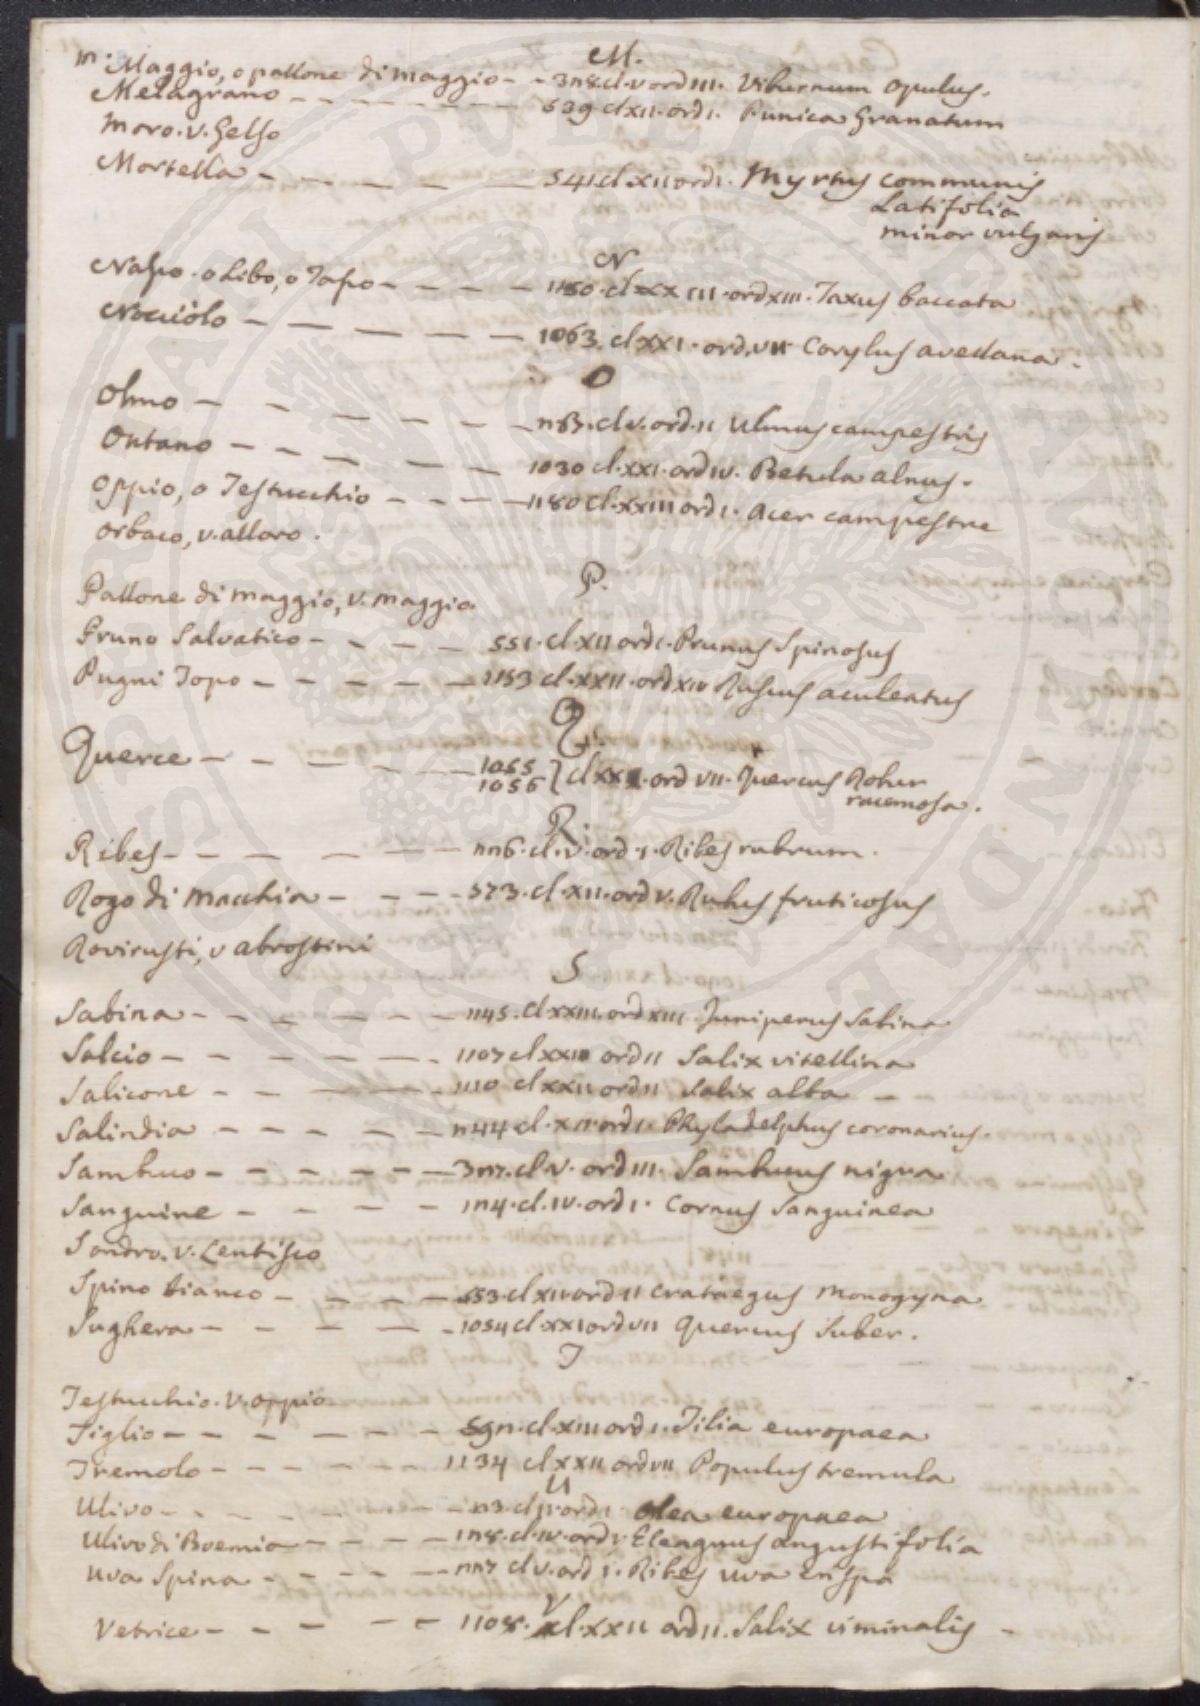 M.
m. Maggio, o pallone di maggio - - 3n8. cl. v ord III. Viburnum opulus.
Melagrano - - - - - - - 539 cl XII. ord I. Punica Granatum
Moro. v. Gelso
Mortella - - - - - - 541 cl XII ord I. Myrtus communis
Latifolia
minor vulgaris
N
Nasso. o Libo, o Tasso - - - - 1150. cl XXIII. ord XIII. Taxus baccata
Nocciòlo - - - - - - 1063. cl XXI. ord. VII Corylus avellana.
O
Olmo - - - - - - - n63. cl v. ord. II Ulmus campestris
Ontano - - - - - - - 1030 cl. XXI. ord IV. Betula alnus.
Oppio, o Testucchio - - - - 1180 cl. XXIII ord I. Acer campestre
Orbaco, v. alloro.
P.
Pallone di maggio, v. maggio.
Pruno Salvatico - - - - - 551. cl. XII ord I. Prunus Spinosus
Pugni Topo - - - - - - 1153 cl. XXII. ord XIV Ruscus aculeatus
Q.
Querce - - - - - - - 1055
1056 } cl XXI. ord VII. Quercus Robur
racemosa.
R.
Ribes - - - - - - nn6. cl. v. ord. I. Ribes rubrum.
Rogo di Macchia - - - - 573. cl. XII. ord V. Rubus fruticosus
Rovirusti, v abrostini
S
Sabina - - - - - - - 1145. cl XXIII. ord XIII. Juniperus Sabina
Salcio - - - - - - - 1107 cl XXII ord II Salix vitellina
Salicone - - - - - - 1110 cl XXII ord II Salix alba
Salindia - - - - - - n44 cl. XII. ord I. Phyladelphus coronarius.
Sambuco - - - - - - 3n7. cl. V. ord III. Sambucus nigra
Sanguine - - - - - 1n4. cl. IV. ord I. Cornus Sanguinea
Sondro. v. Lentisco
Spino bianco - - - - - 553. cl XII ord II Crataegus Monogyna
Sughera - - - - - - 1054 cl XXI ord VII Quercus Suber.
T
Testucchio. v. oppio
Tiglio - - - - - - - 591. cl. XIII ord I. Tilia europaea
Tremolo - - - - - - 1134 cl XXII ord VII Populus tremula
U
Ulivo - - - - - - - n3. cl II. ord I Olea europaea
Ulivo di Boemia - - - - 1n8. cl. IV. ord I Eleagnus angustifolia
Uva Spina - - - - - nn7 cl v. ord I. Ribes uva crispa
V
Vetrice - - - - - 1108. cl. XXII ord II. Salix viminalis -